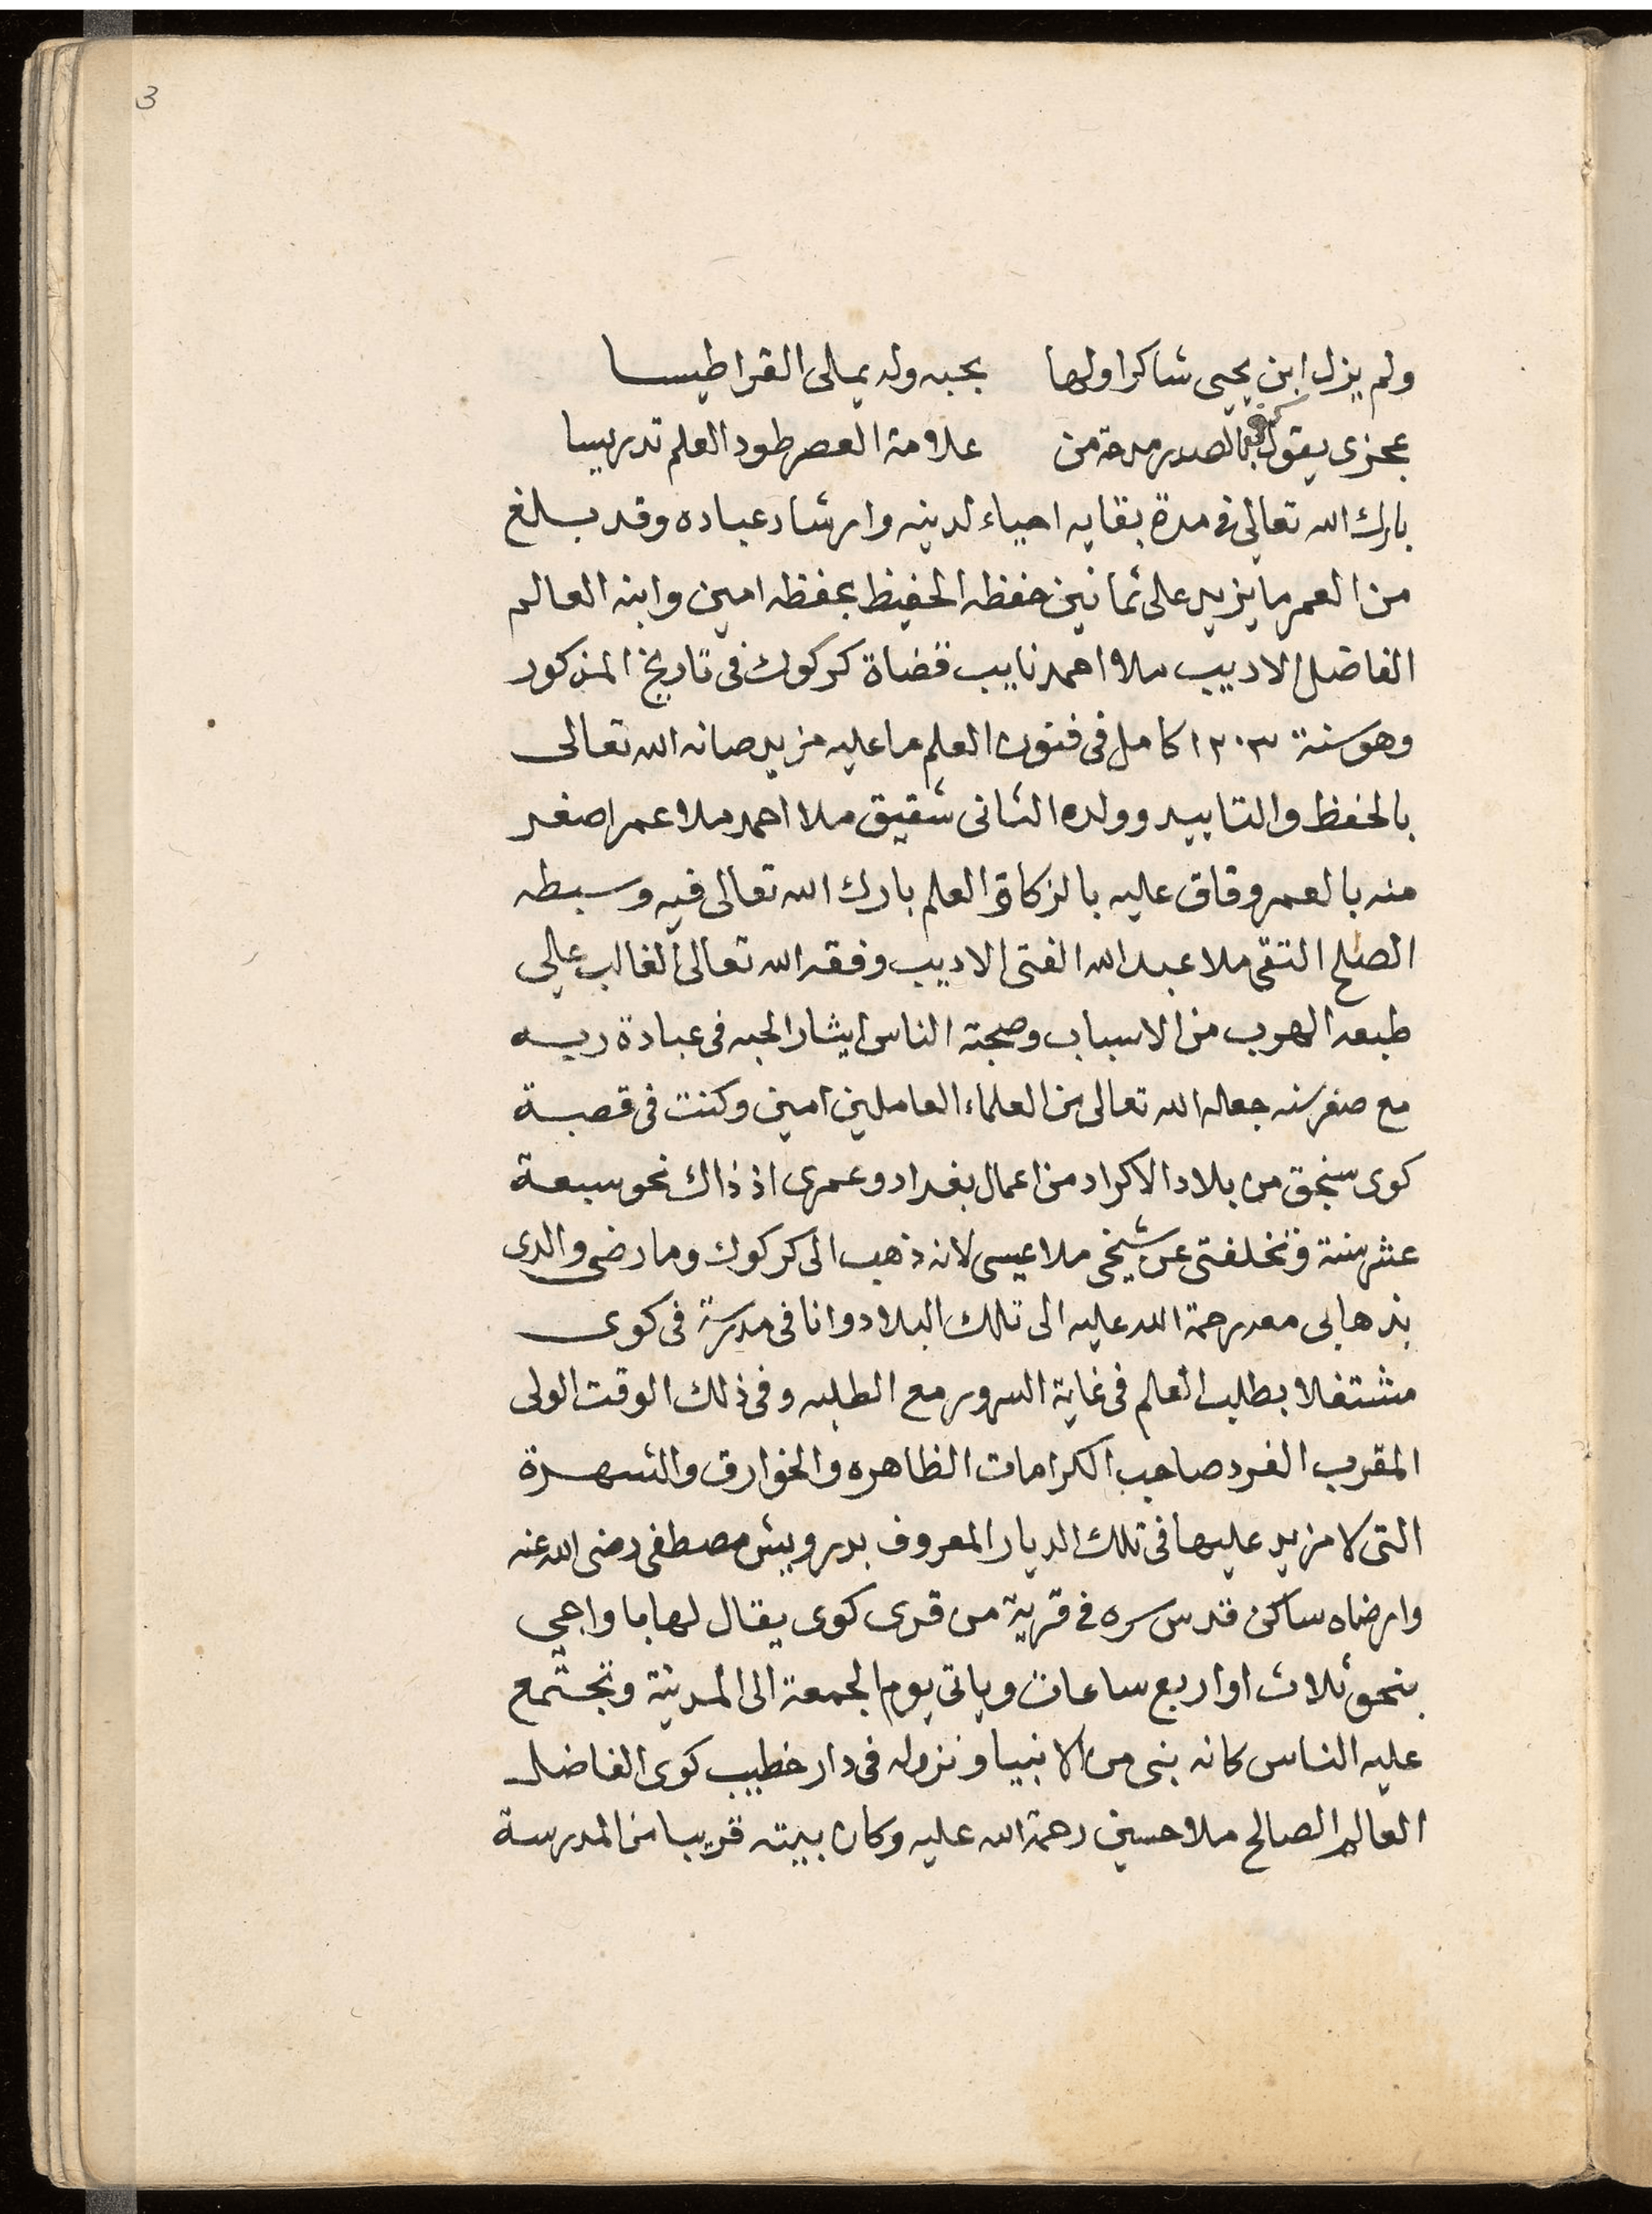 3
ولم يزل ابن يحيى شاكرا ولها بحبه وله يملى القراطيسا
عجزى يقول كفى بالصدر مدحة من علامة العصر طود العلم تدريسا
بارك الله تعالى فى مدة بقايه احياء لدينه وارشاد عباده وقد بلغ
من العمر ما يزيد على ثمانين حفظه الحفيظ بحفظه امين وابنه العالم
الفاضل الاديب ملا احمد نايب قضاة كركوك فى تاريخ المذكور
وهو سنة ١٢٠٣ كامل فى فنون العلم ما عليه مزيد صانه الله تعالى
بالحفظ والتاييد وولده الثانى شقيق ملا احمد ملا عمر اصغر
منه بالعمر وفاق عليه بالزكاة والعلم بارك الله تعالى فيه وسبطه
الصلح التقى ملا عبد الله الفتى الاديب وفقه الله تعالى الغالب على
طبعه الهرب من الاسباب وصحبة الناس ايثار الحبه فى عبادة ربه
مع صغر سنه جعله الله تعالى من العلماء العاملين امين وكنت فى قصبة
كوى سنجق من بلاد الاكراد من اعمال بغداد وعمرى اذ ذاك نحو سبعة
عشر سنة وتخلفتى عن شيخى ملا عيسى لانه ذهب الى كركوك وما رضى والدى
بذهابى معه رحمة الله عليه الى تلك البلاد وانا فى مدرسة فى كوى
مشتغلا بطلب العلم فى غاية السرور مع الطلبه وفى ذلك الوقت الولى
المقرب الفرد صاحب الكرامات الظاهره والخوارق والشهرة
التى لا مزيد عليها فى تلك الديار المعروف بدرويش مصطفى رضى الله عنه
وارضاه ساكن قدس سره فى قرية من قرى كوى يقال لها باواجي
بنحو ثلاث او اربع ساعات وياتى يوم الجمعة الى المدينة وتجتمع
عليه الناس كانه بنى من الانبيا ونزوله فى دار خطيب كوى الفاضل
العالم الصالح ملا حسين رحمة الله عليه وكان بيته قريبا من المدرسة